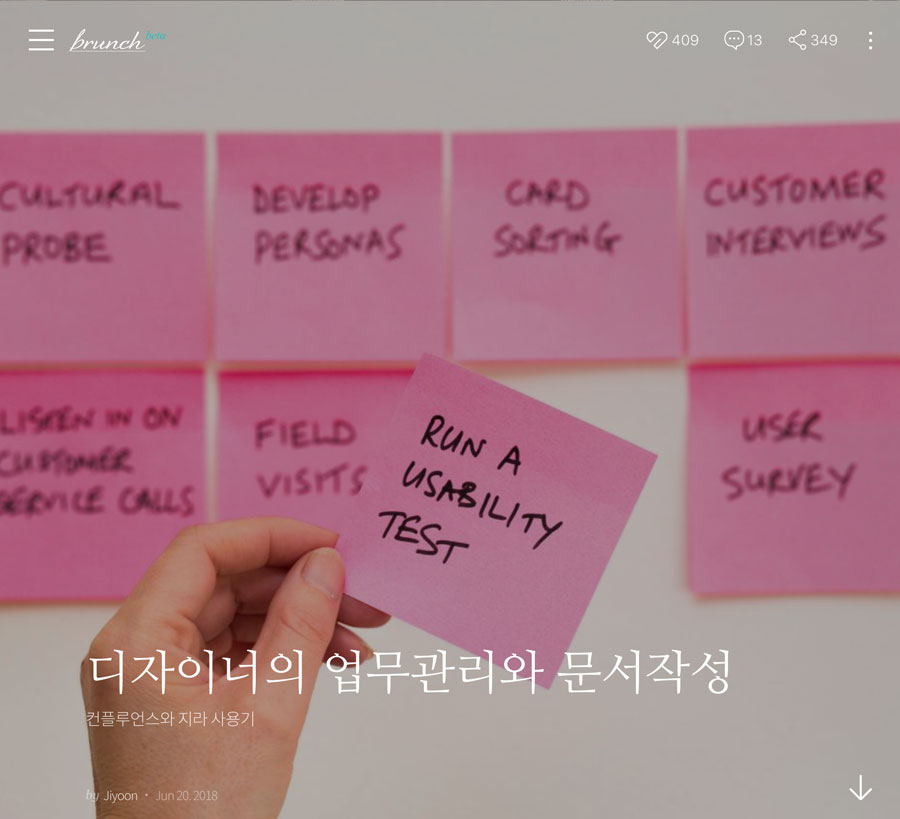 brunch beta
409
13
349
CULTURAL
PROBE
DEVELOP
PERSONAS
CARD
SORTING
CUSTOMER
INTERVIEWS
LISTEN IN ON
CUSTOMER
SERVICE CALLS
FIELD
VISITS
RUN A
USABILITY
TEST
USER
SURVEY
디자이너의 업무관리와 문서작성
컨플루언스와 지라 사용기
by Jiyoon · Jun 20. 2018